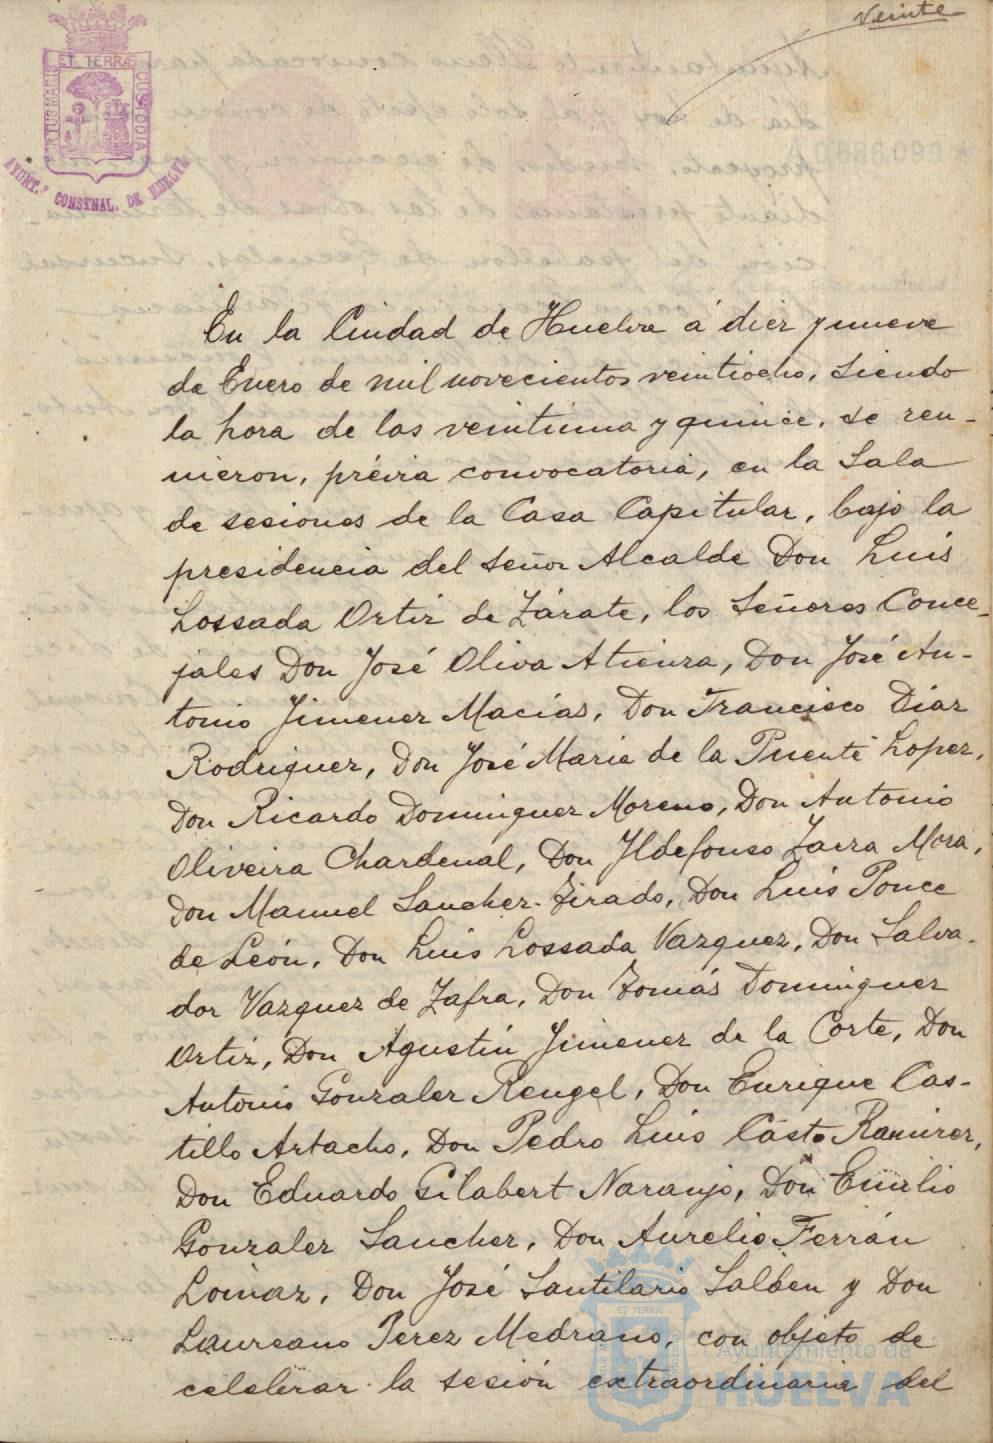 Veinte
ET TERRÆ
PORTUS MARIS
CUSTODIA
AYUNT.º CONSTNAL. DE HUELVA
En la Ciudad de Huelva á diez y nueve
de Enero de mil novecientos veintiocho, siendo
la hora de las veintiuna y quince, se reu-
nieron, prévia convocatoria, en la Sala
de sesiones de la Casa Capitular, bajo la
presidencia del Señor Alcalde Don Luis
Lossada Ortiz de Zárate, los Señores Conce-
jales Don José Oliva Atienza, Don José An-
tonio Jimenez Macías, Don Francisco Díaz
Rodriguez, Don José María de la Puente Lopez,
Don Ricardo Dominguez Moreno, Don Antonio
Oliveira Chardenal, Don Ildefonso Zarza Mora,
Don Manuel Sanchez-Tirado, Don Luis Ponce
de León, Don Luis Lossada Vazquez, Don Salva-
dor Vazquez de Zafra, Don Tomás Dominguez
Ortiz, Don Agustín Jimenez de la Corte, Don
Antonio Gonzalez Rengel, Don Enrique Cas-
tillo Artacho, Don Pedro Luis Casto Ramirez,
Don Eduardo Gilabert Naranjo, Don Emilio
Gonzalez Sanchez, Don Aurelio Ferrán
Loinaz, Don José Santilario Salben y Don
Laureano Perez Medrano, con objeto de
celebrar la sesión extraordinaria del
ET TERRÆ
Ayuntamiento de
HUELVA